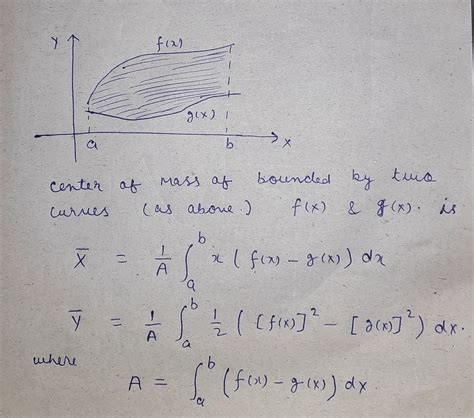 Y
f(x)
g(x)
a
b
X
center of mass of bounded by two
curves (as above) f(x) & g(x). is
X̅ = 1/A ∫_a^b x (f(x) - g(x)) dx
Y̅ = 1/A ∫_a^b 1/2 ([f(x)]² - [g(x)]²) dx.
where
A = ∫_a^b (f(x) - g(x)) dx.